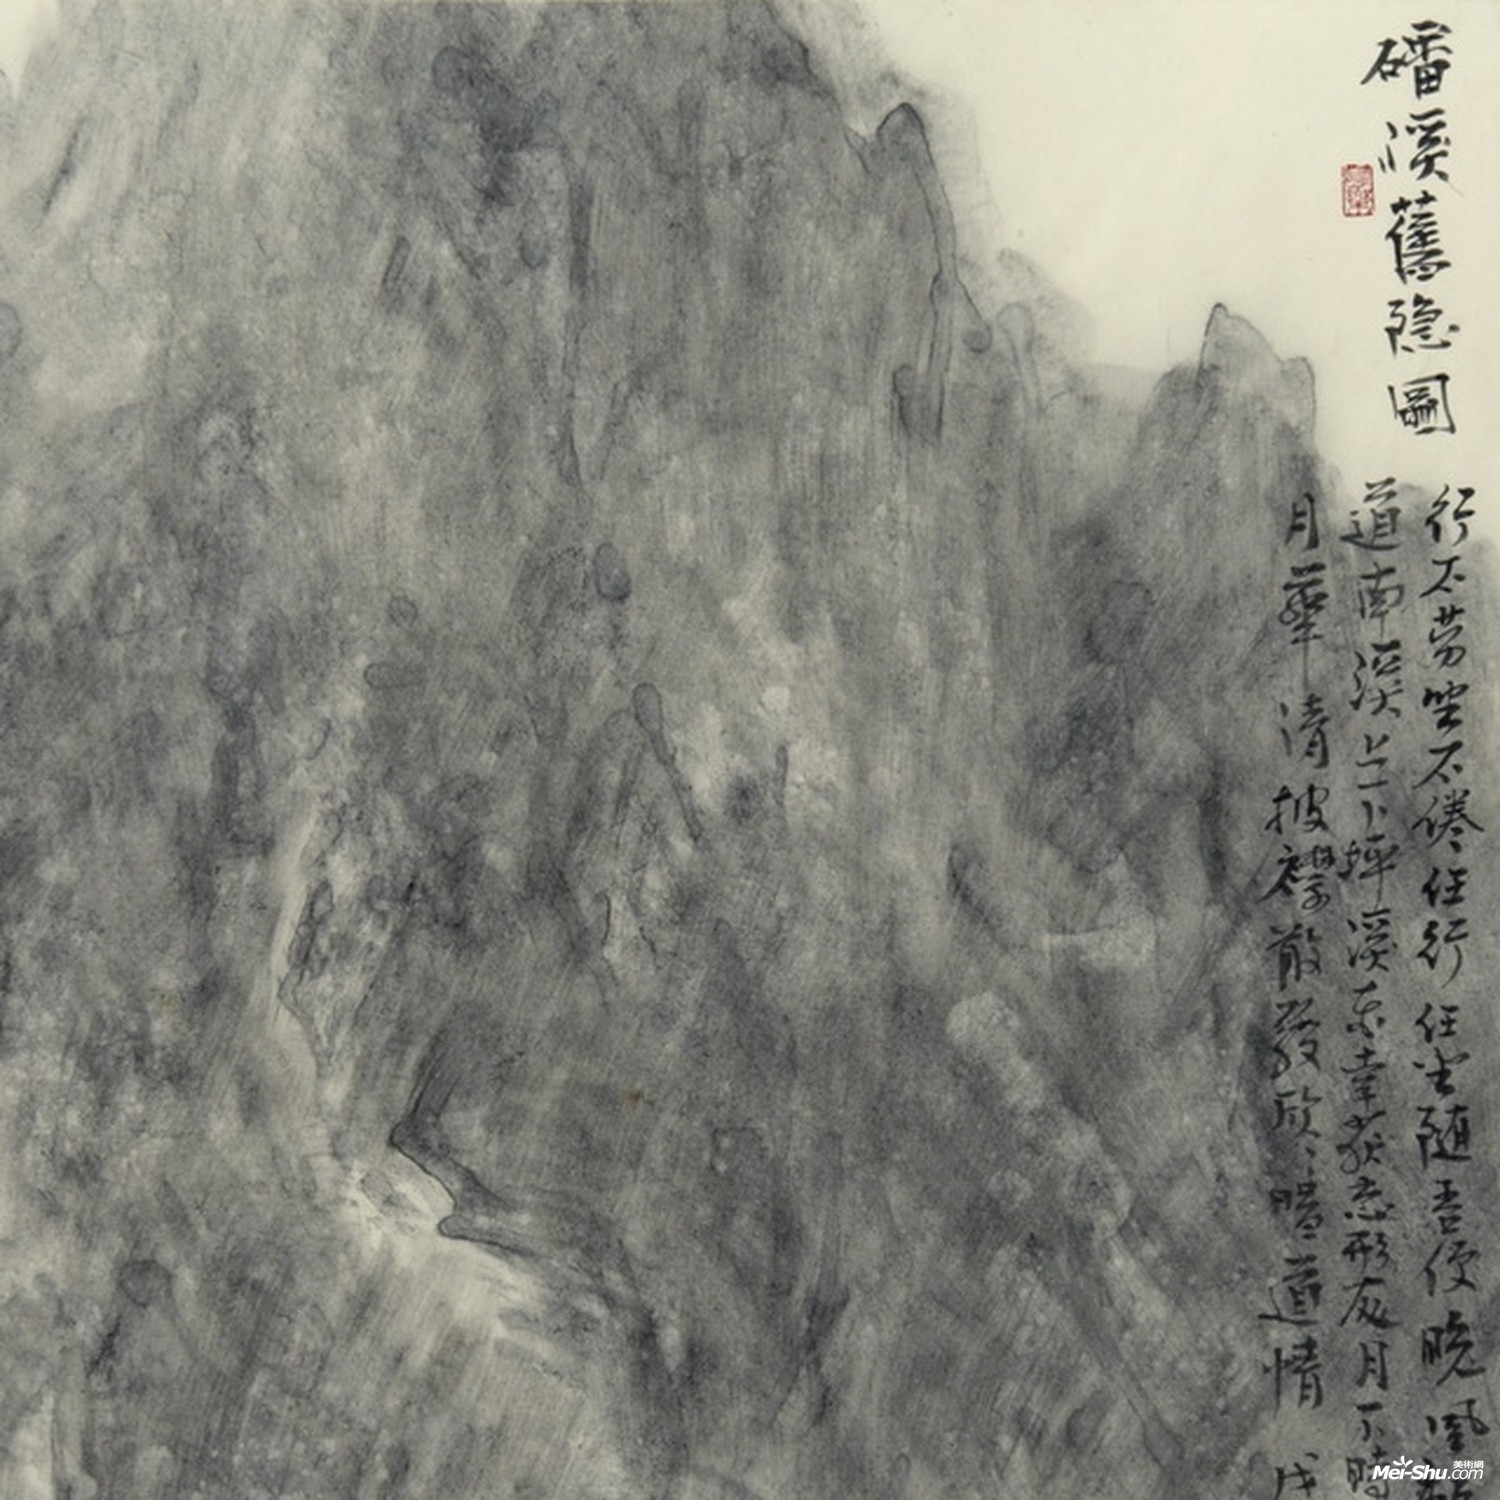 磻溪舊隐圖
行不劳坐不倦任行任坐随吾便晚風
道南溪上下坪溪東幸获忘形友月下時
月華清披襟散發欣〻唱道情 戊
Mei-Shu.com
美術網